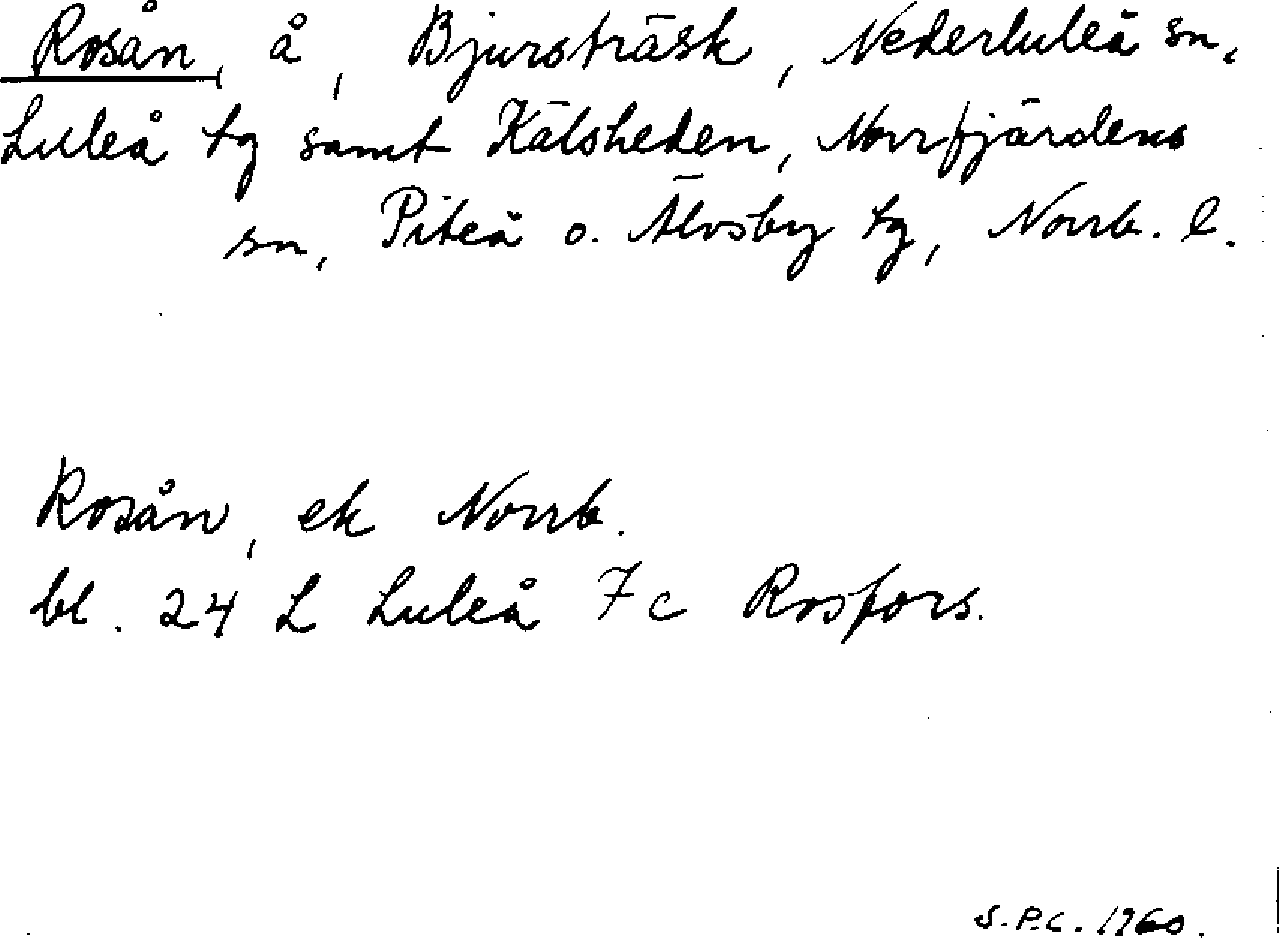 Rosån, å, Bjursträsk, Nederluleå sn,
Luleå tg samt Kälsheden, Norrfjärdens
sn, Piteå o. Älvsby tg, Norrb. l.
Rosån, ek Norrb.
bl. 24 L Luleå 7c Rosfors.
S.P.C. 1960.